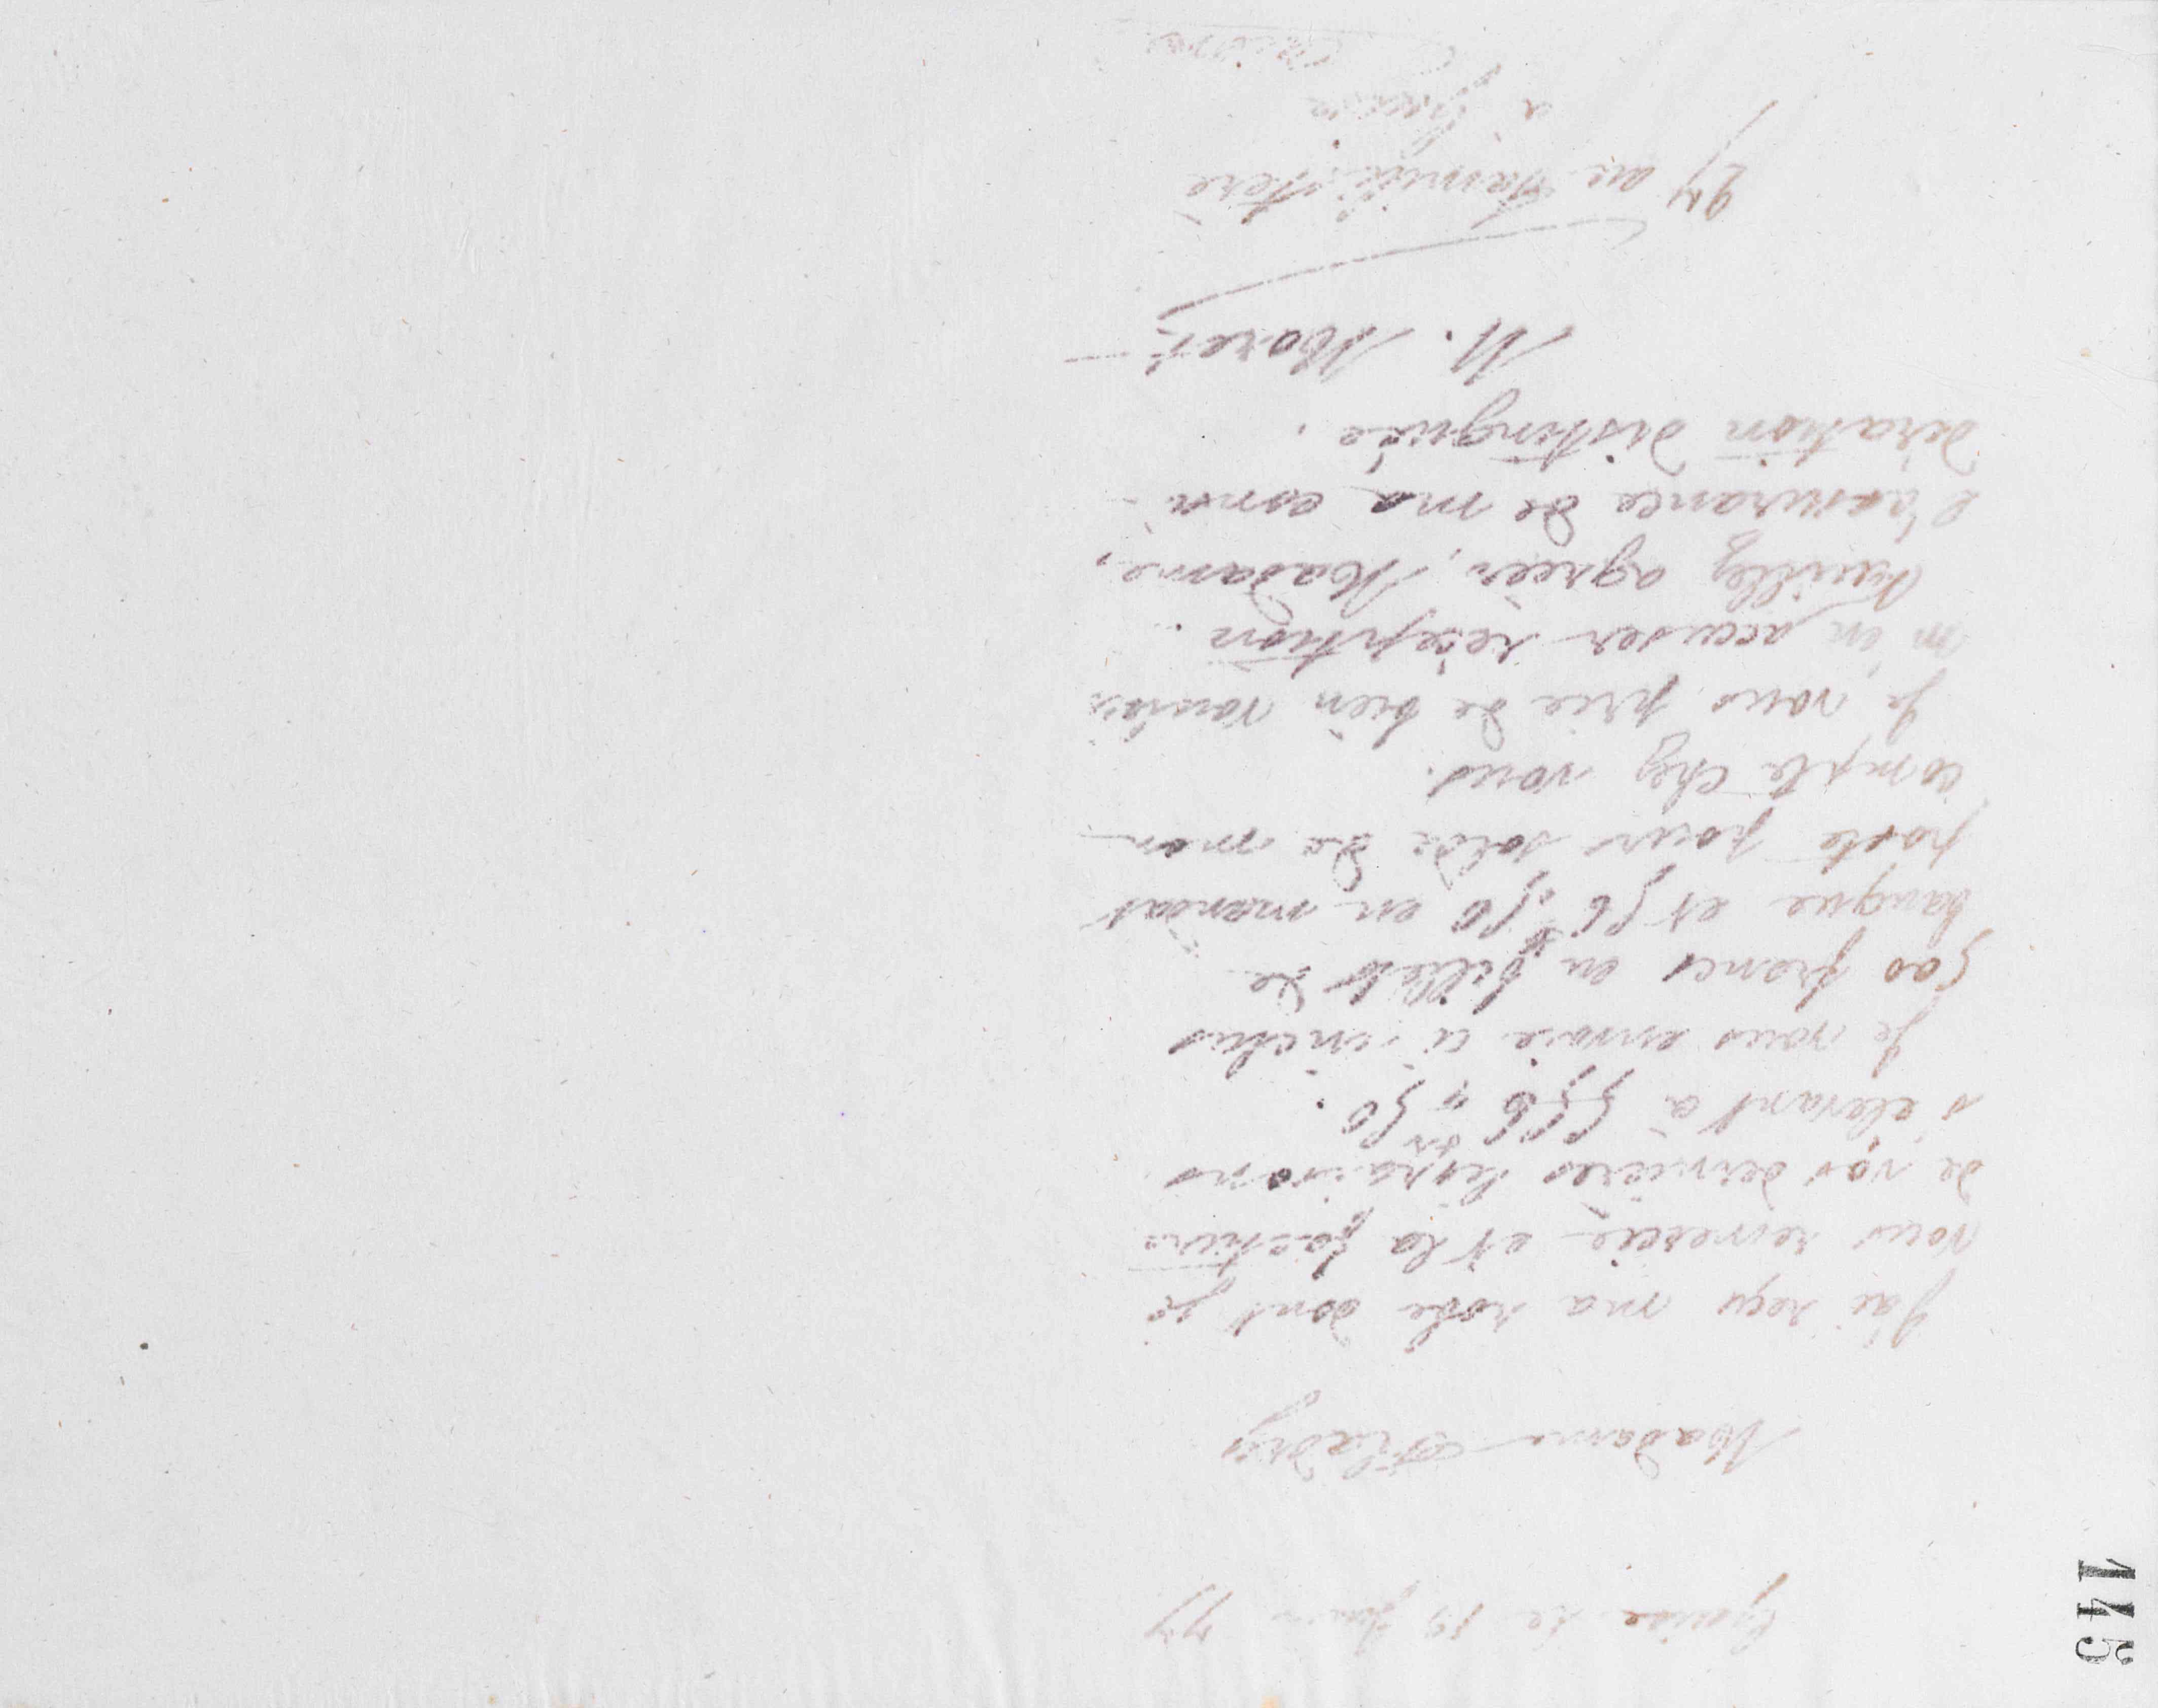 Guise le 15 Juin 77
Madame
J'ai reçu ma robe dont je
vous remercie et la facture
de vos dernières livraisons
s'elevant à 556 fr 50.
Je vous envoie ci-inclus
500 francs en billets de
banque et 56 f 50 en mandat
poste pour solde de mon
compte chez vous.
Je vous prie de bien vouloir
m'en accuser réception.
Veuillez agréer, Madame,
l'assurance de ma consi-
dération distinguée.
M. Moret
27 au familistère
à Guise
145